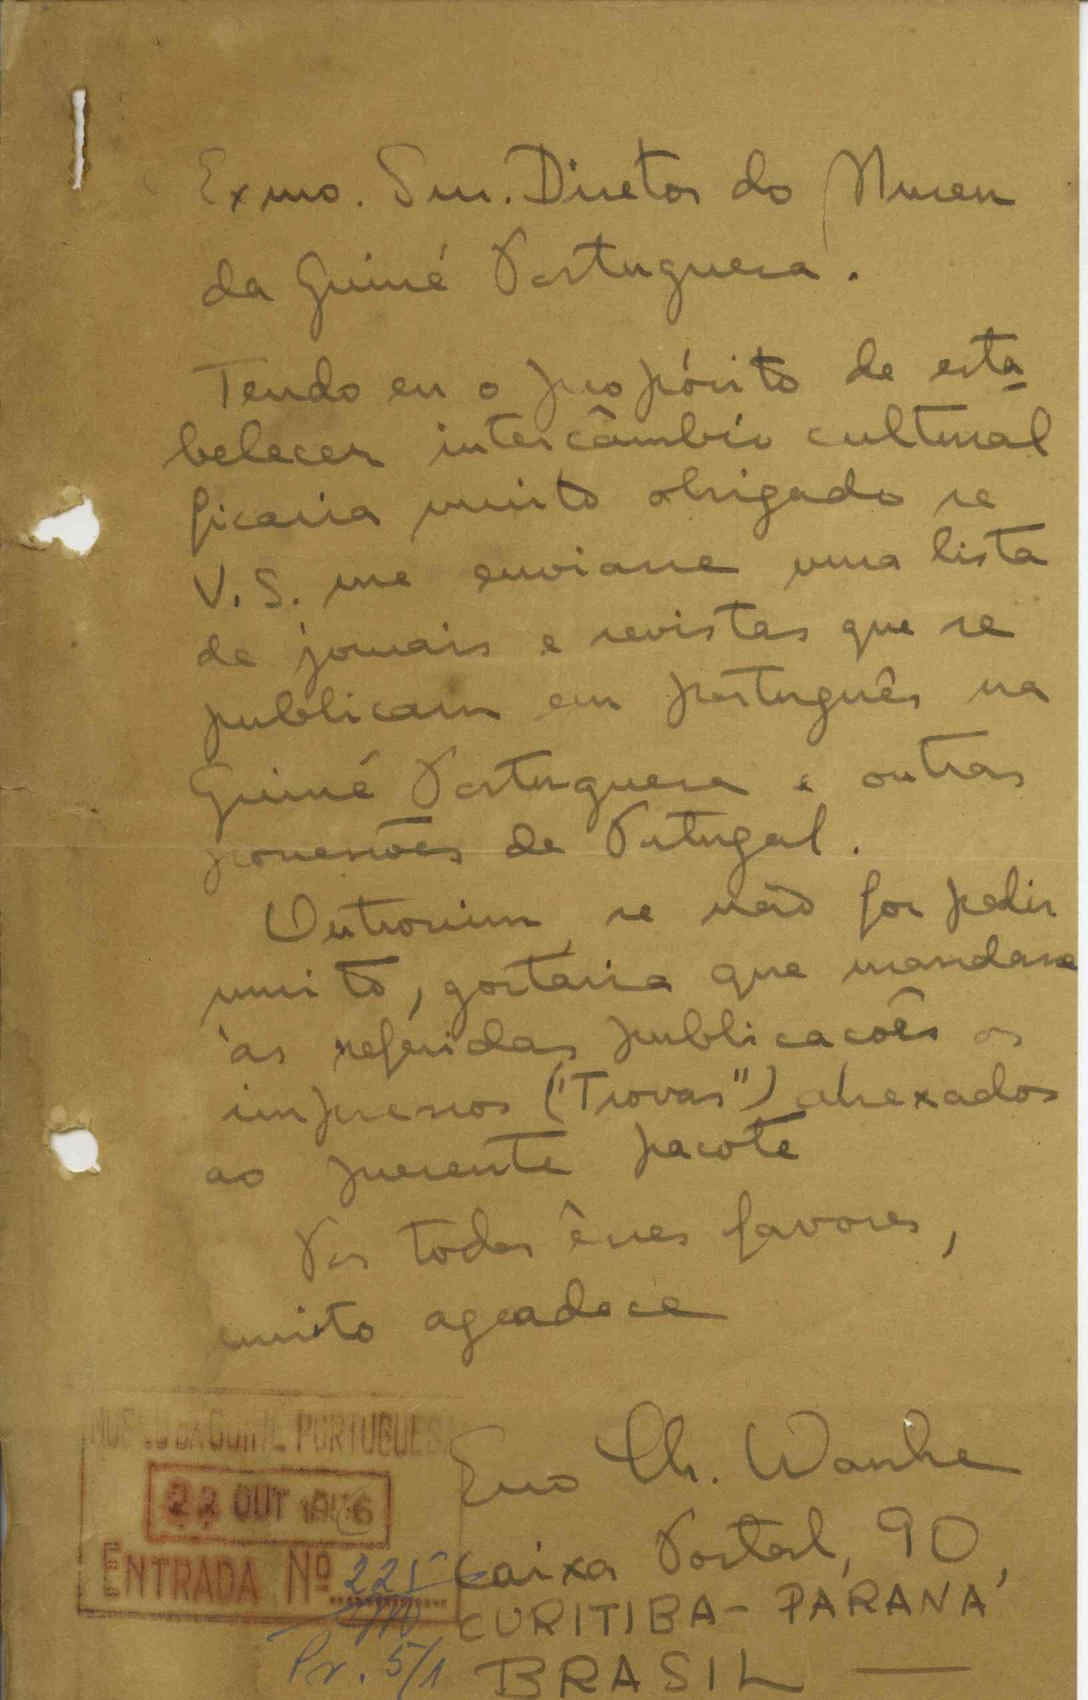 Exmo. Snr. Diretor do Museu
da Guiné Portuguesa.
Tendo eu o propósito de esta-
belecer intercâmbio cultural
ficaria muito obrigado se
V.S. me enviasse uma lista
de jornais e revistas que se
publicam em português na
Guiné Portuguesa e outras
possessões de Portugal.
Outrossim, se não for pedir
muito, gostaria que mandasse
às referidas publicacões os
impressos ("Trovas") anexados
ao presente pacote
Por todos êsses favores,
muito agradece
Eno Th. Wanke
Caixa Postal, 90,
CURITIBA - PARANÁ
BRASIL —
MUSEU DA GUINÉ PORTUGUESA
22 OUT 1956
ENTRADA Nº 225
Pr. 5/1